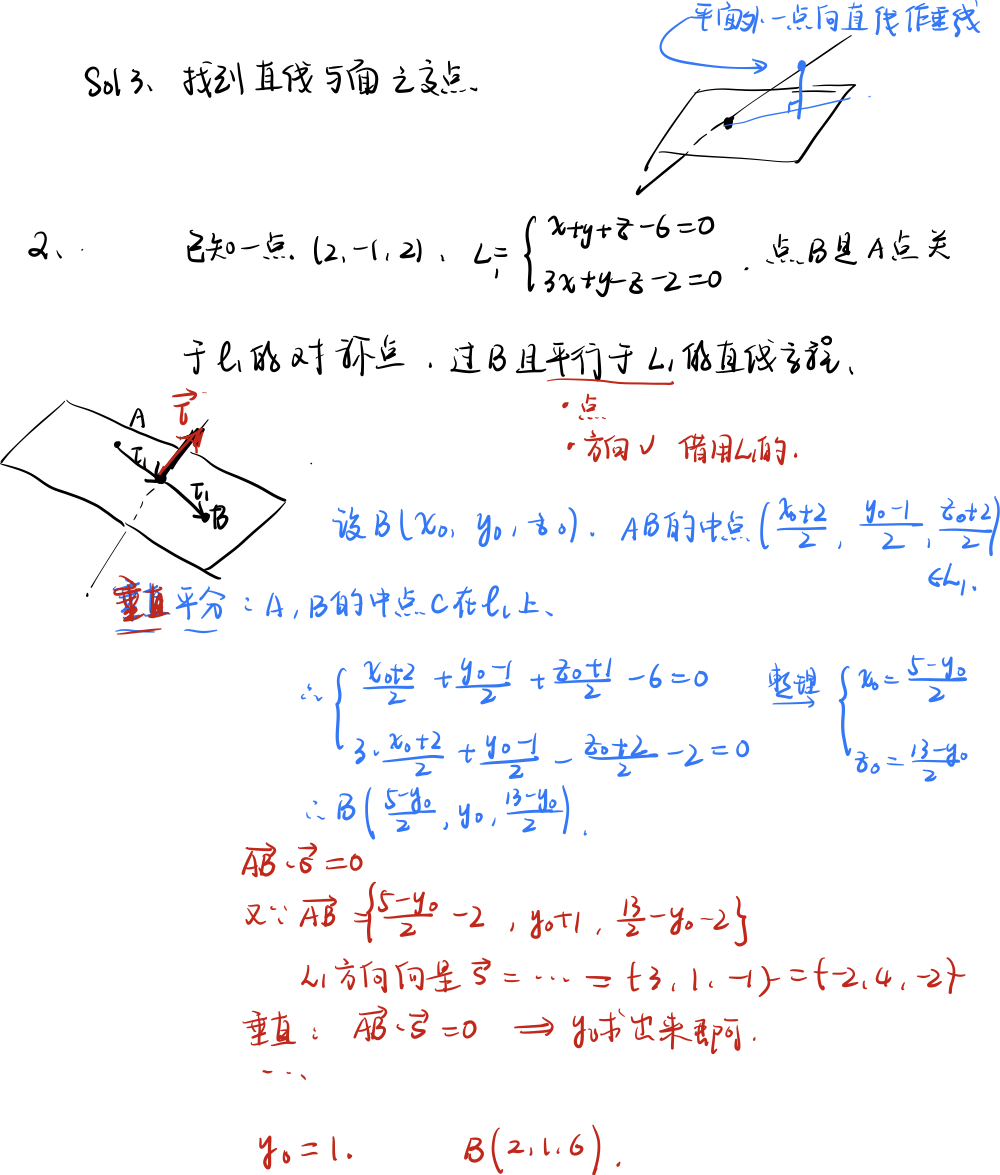 平面外一点向直线作垂线
Sol 3、找到直线与面之交点.
2、 已知一点.(2,-1,2)、L₁= { x+y+z-6=0
3x+y-z-2=0 . 点B是A点关
于l₁的对称点.过B且平行于L₁的直线方程、
·点
·方向√ 借用L₁的.
A
B
设B(x₀, y₀, z₀). AB的中点(\frac{x₀+2}{2}, \frac{y₀-1}{2}, \frac{z₀+2}{2})
∈L₁.
垂直平分:A,B的中点C在l₁上、
∴ { \frac{x₀+2}{2} + \frac{y₀-1}{2} + \frac{z₀+1}{2} -6=0 整理→ { x₀=\frac{5-y₀}{2}
3·\frac{x₀+2}{2} + \frac{y₀-1}{2} - \frac{z₀+2}{2} -2=0 z₀=\frac{13-y₀}{2}
∴B(\frac{5-y₀}{2}, y₀, \frac{13-y₀}{2}).
\vec{AB}·\vec{s}=0
又∵ \vec{AB}={\frac{5-y₀}{2}-2, y₀+1, \frac{13}{2}-y₀-2}
L₁方向向量\vec{s}=…={3,1,-1}={-2,4,-2}
垂直: \vec{AB}·\vec{s}=0 ⇒ y₀求出来即可.
…
y₀=1. B(2,1,6).